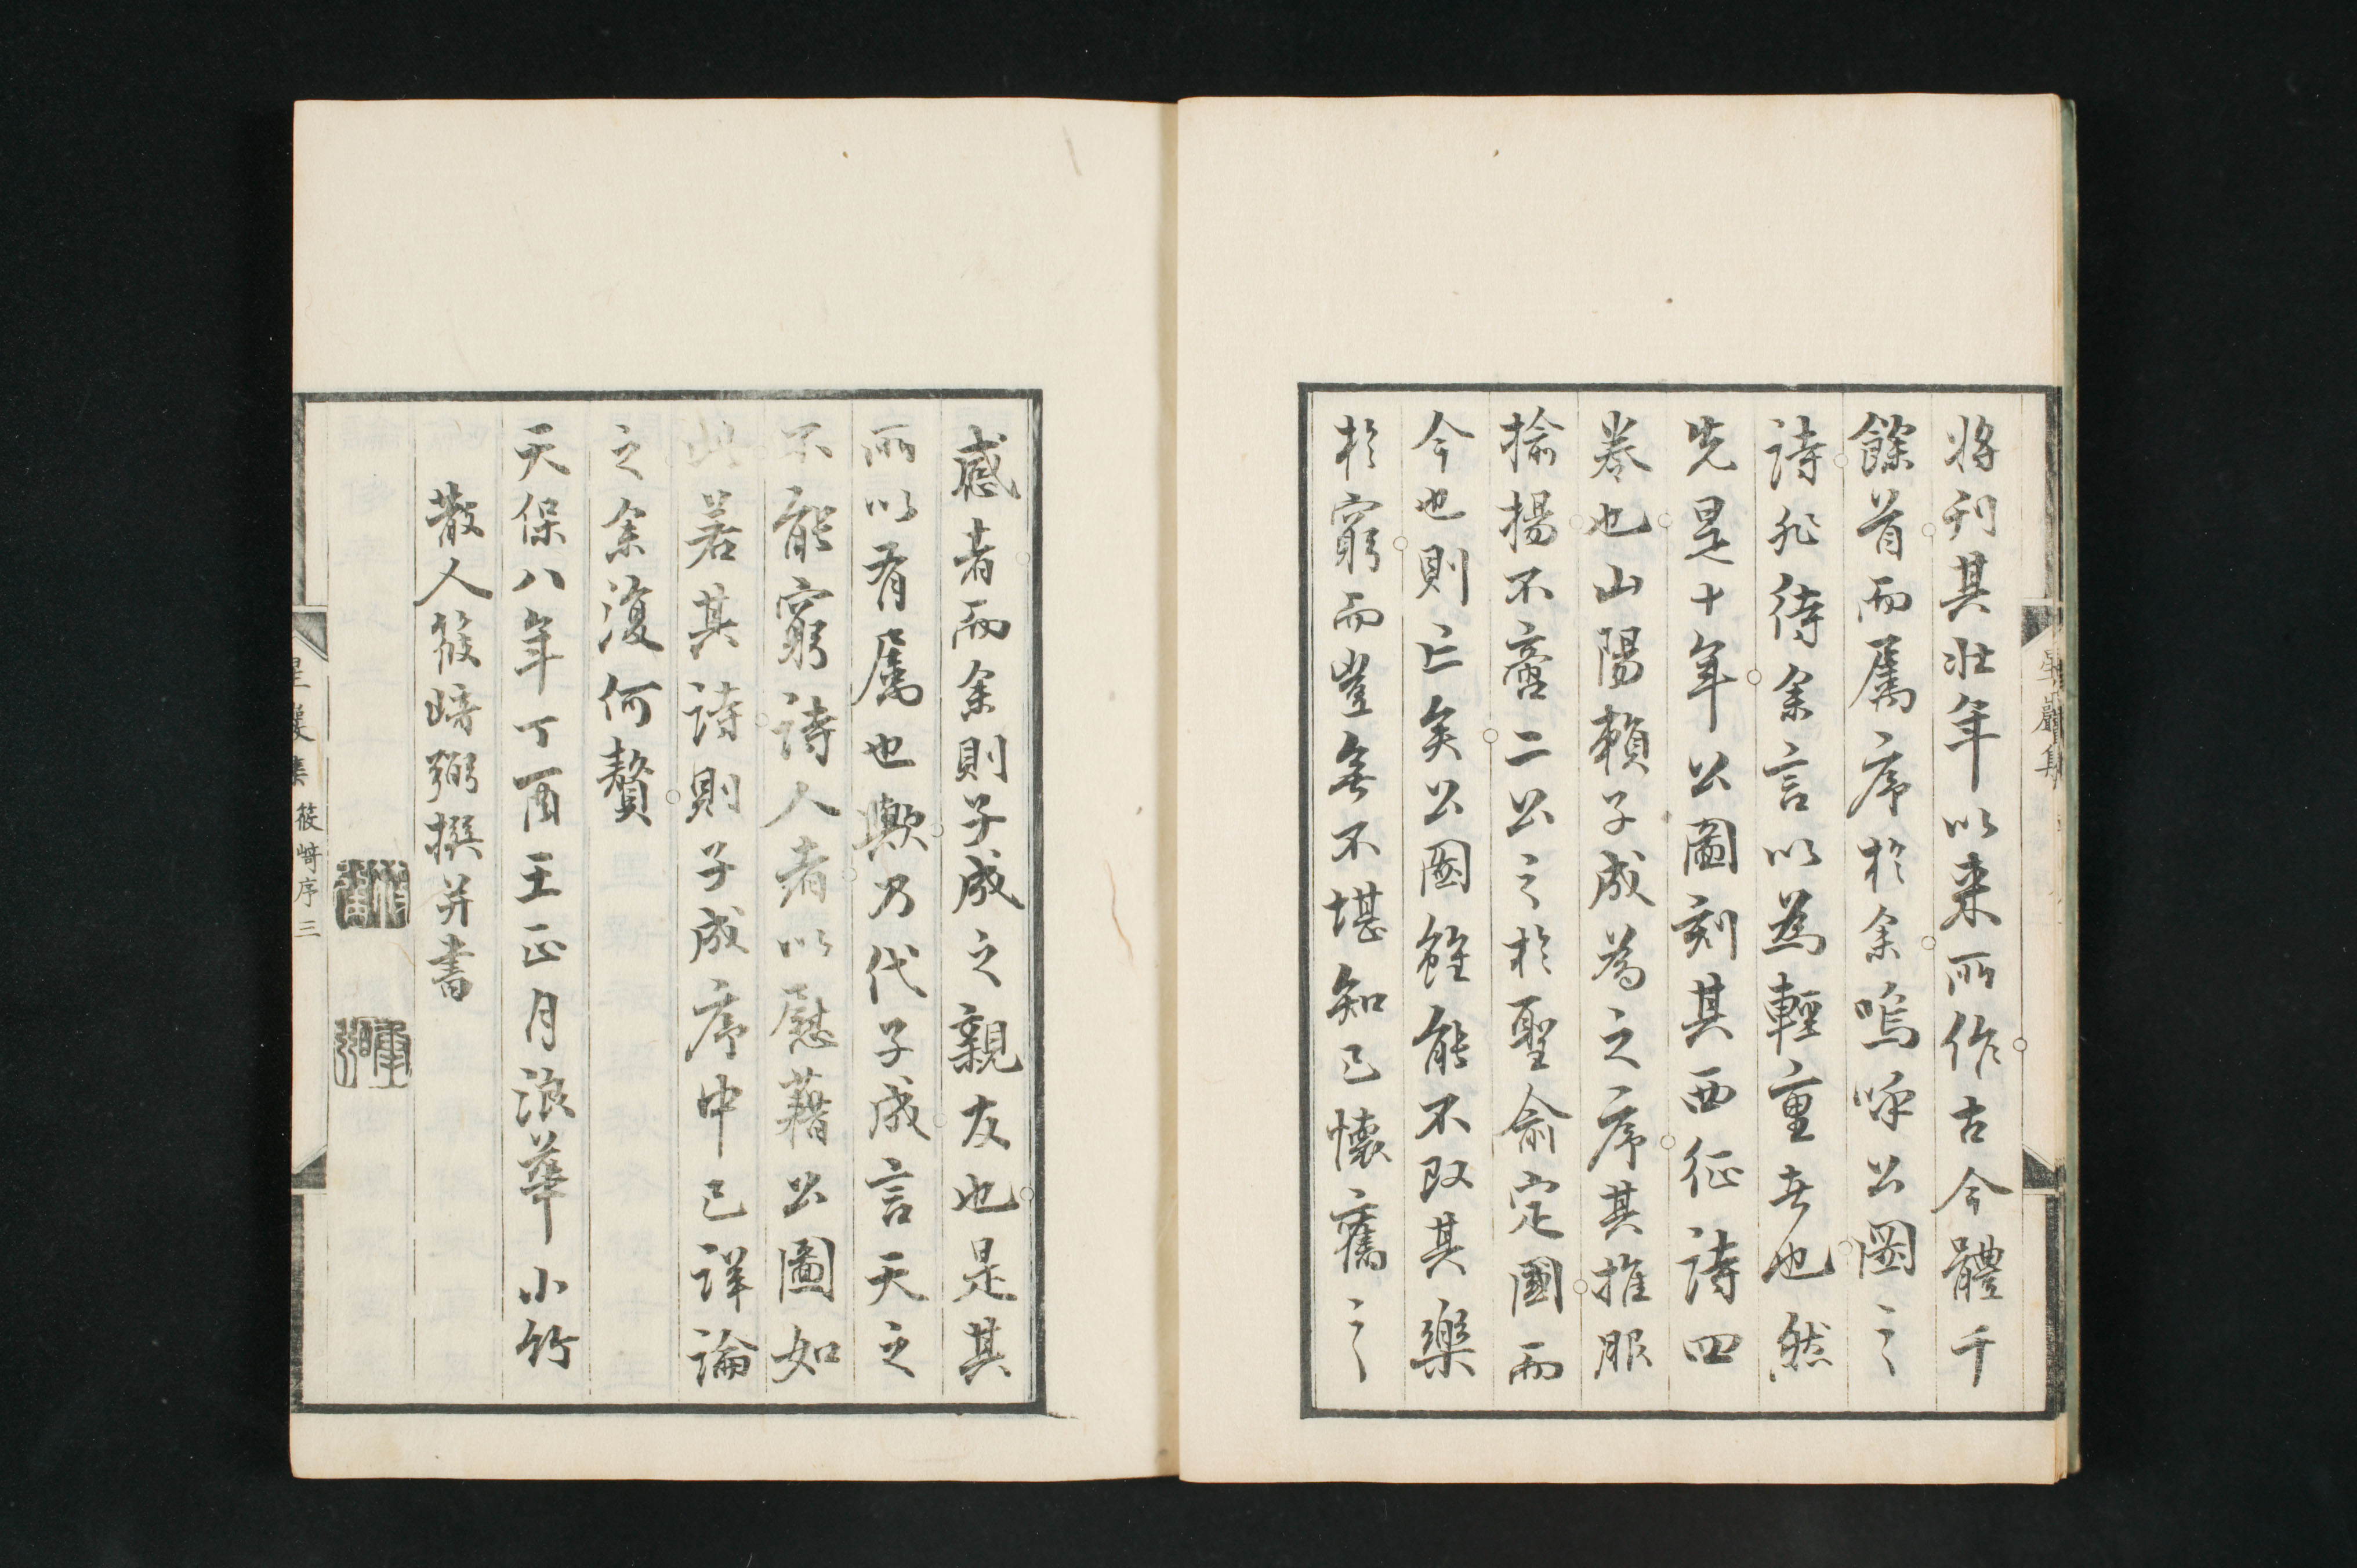 將刊其壯年以来所作古今體千
餘首而屬序於余嗚呼公圖之
詩非待余言以為輕重者也然
先是十年公圖刻其西征詩四
卷也山陽賴子成為之序其推服
揄揚不啻二公之於聖俞定國而
今也則亡矣公圖雖能不改其樂
於窮而豈無不堪知己懷舊之
星巖集
感者而余則子成之親友也是其
所以有屬也歟乃代子成言天之
不能窮詩人者以慰藉公圖如
此若其詩則子成序中已詳論
之余復何贅
天保八年丁酉王正月浪華小竹
散人筱崎弼撰并書
星巖集 筱崎序 三